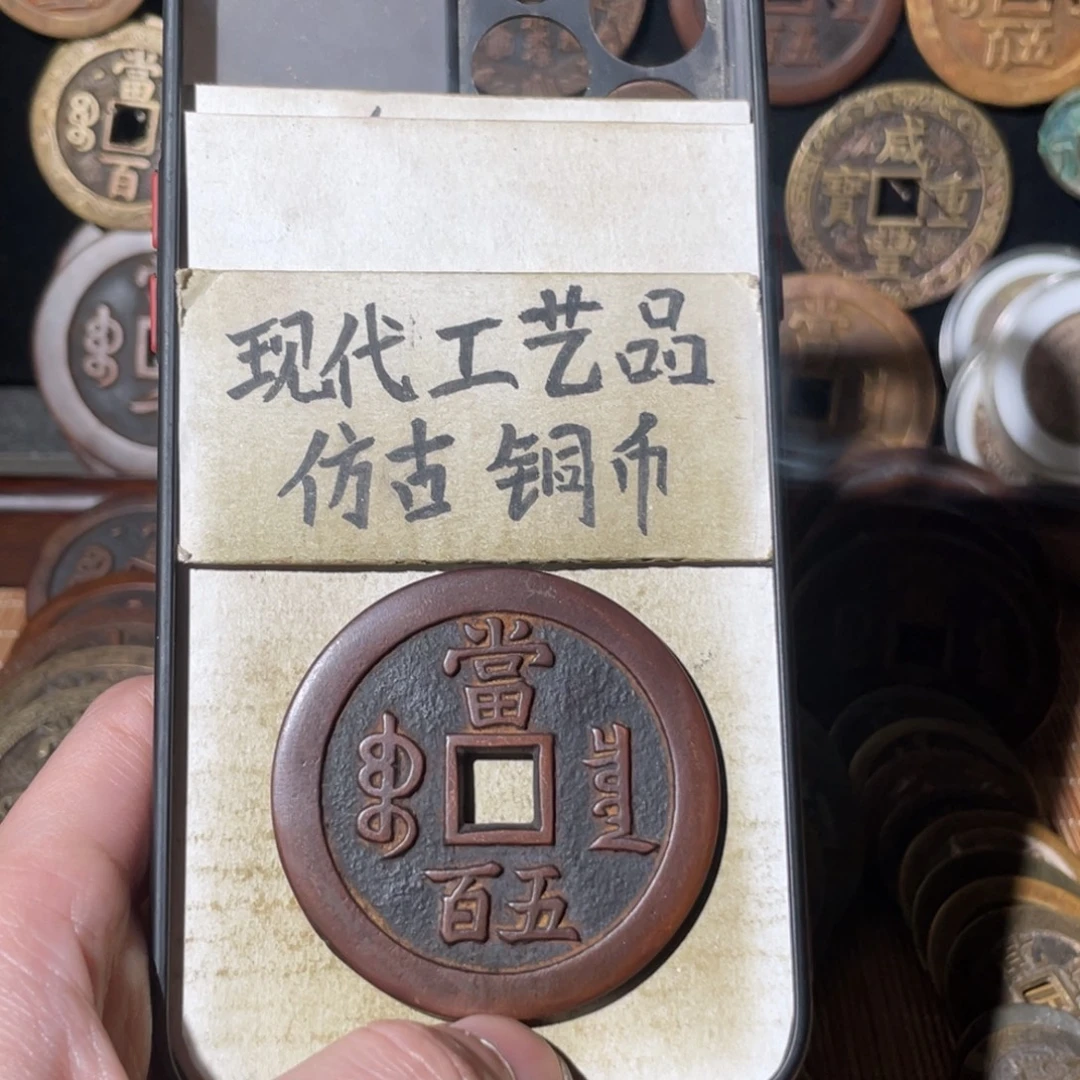 现代工艺品
仿古铜币
當
五百
當
百
咸
寶 重
豐